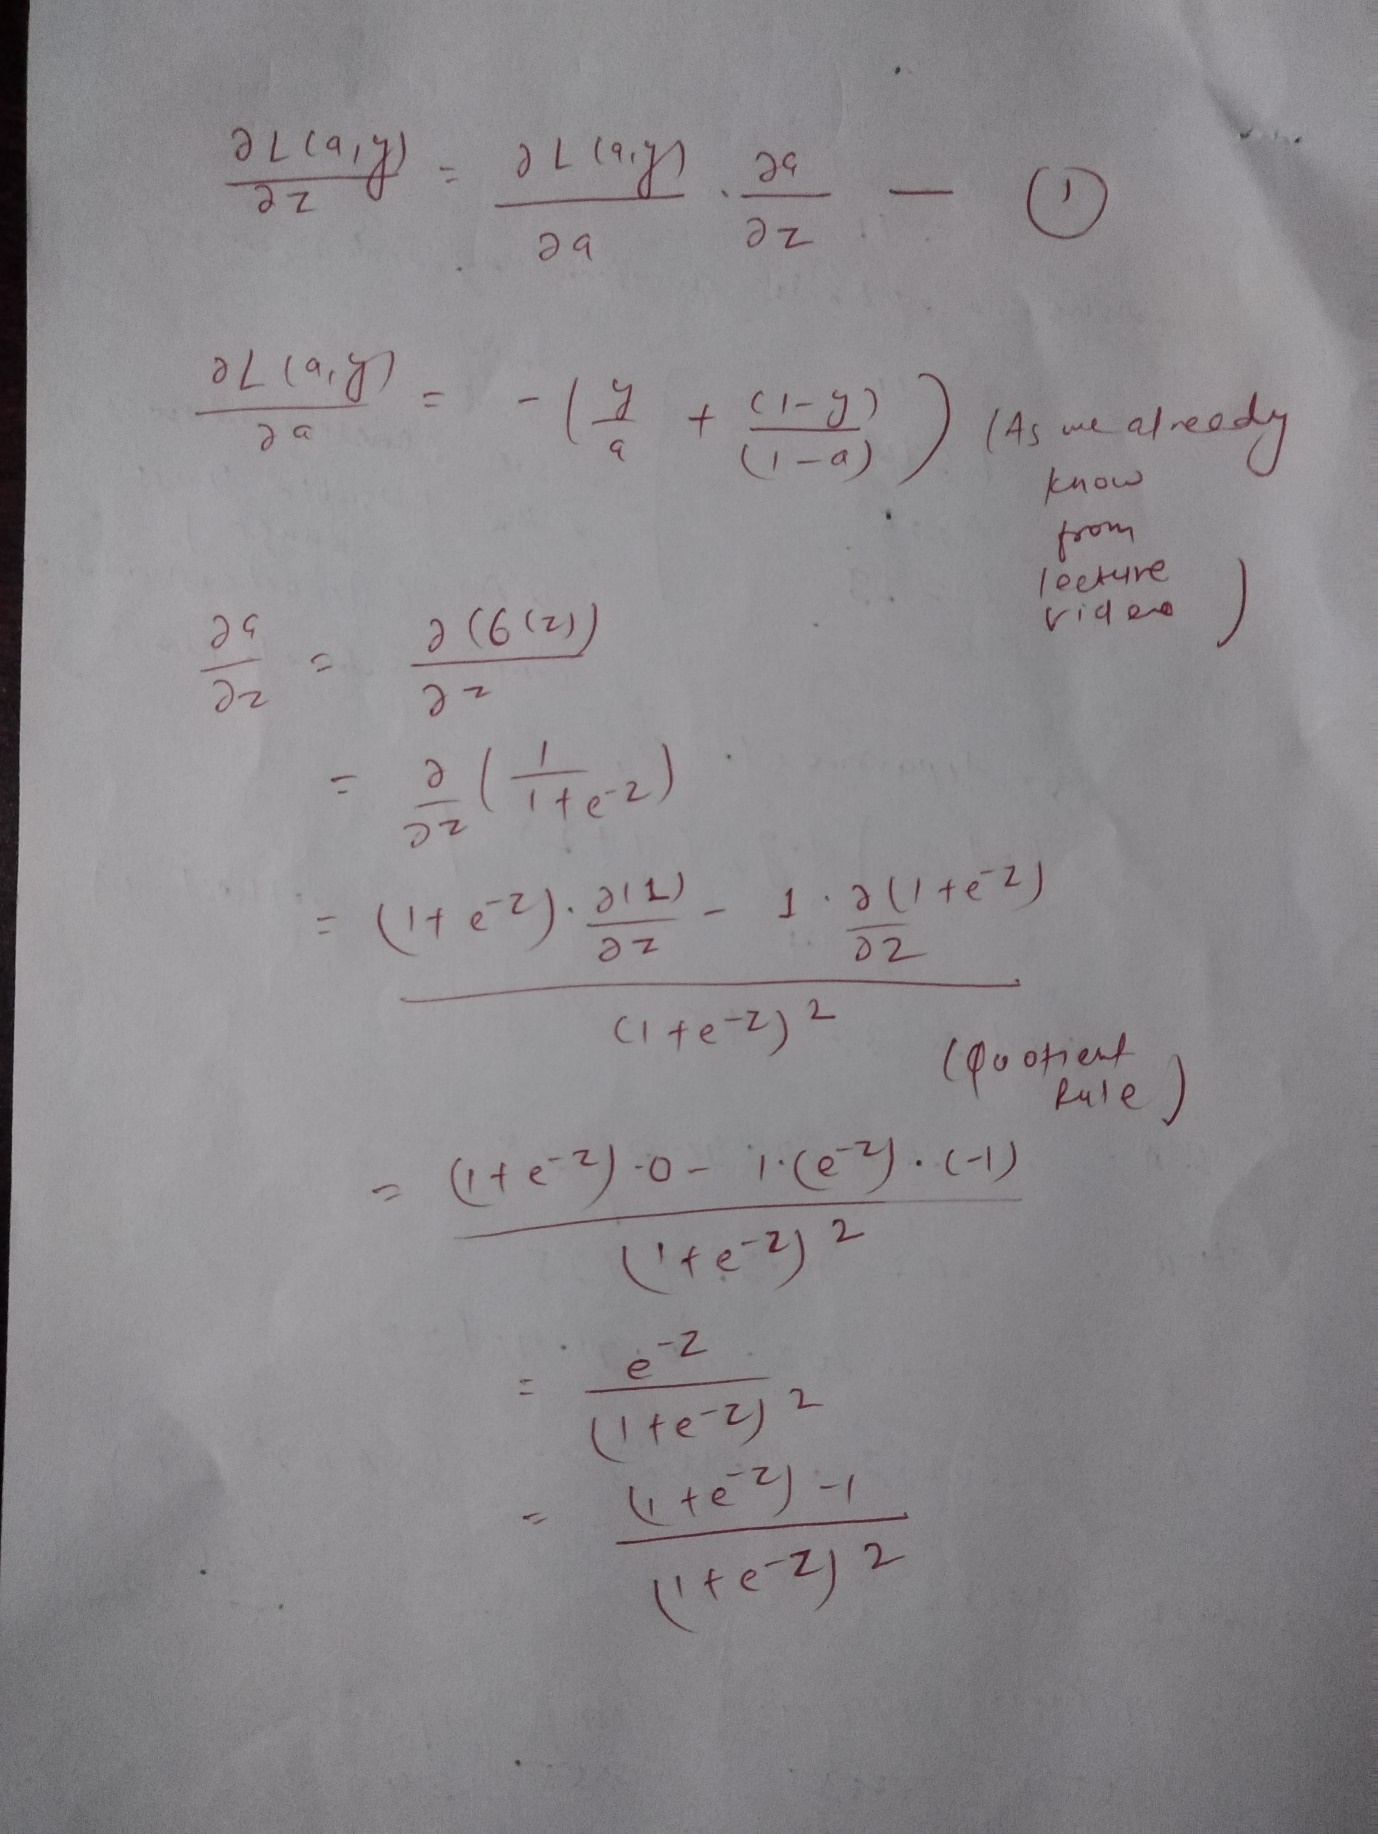 ∂L(a,y)/∂z = ∂L(a,y)/∂a · ∂a/∂z — ①
∂L(a,y)/∂a = -(y/a + (1-y)/(1-a)) (As we already
know
from
lecture
video)
∂a/∂z = ∂(6(z))/∂z
= ∂/∂z (1/1+e^-z)
= (1+e^-z)·∂(1)/∂z - 1·∂(1+e^-z)/∂z
(1+e^-z)^2
(Quotient
Rule)
= (1+e^-z)·0 - 1·(e^-z)·(-1)
(1+e^-z)^2
= e^-z
(1+e^-z)^2
= (1+e^-z) -1
(1+e^-z)^2